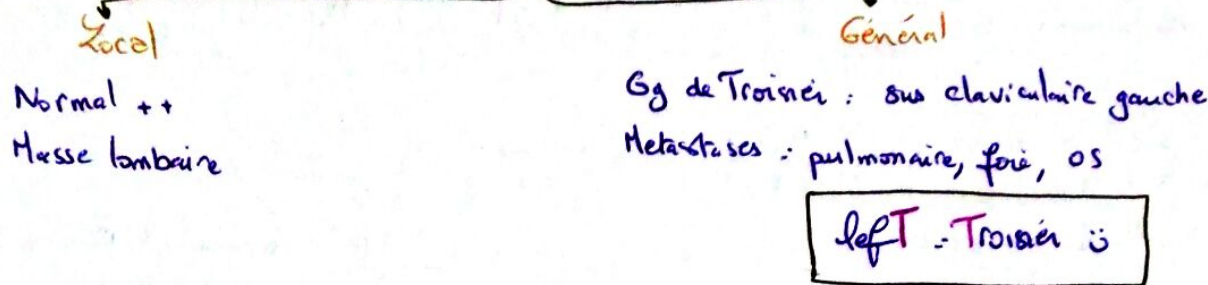 Local
Normal ++
Masse lombaire
Général
Gg de Troisier : sus claviculaire gauche
Metastases : pulmonaire, foie, os
lefT = Troisier ü